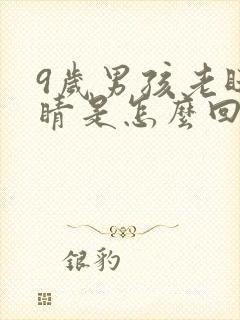 9歲男孩老眨
睛是怎麼回
銀豹